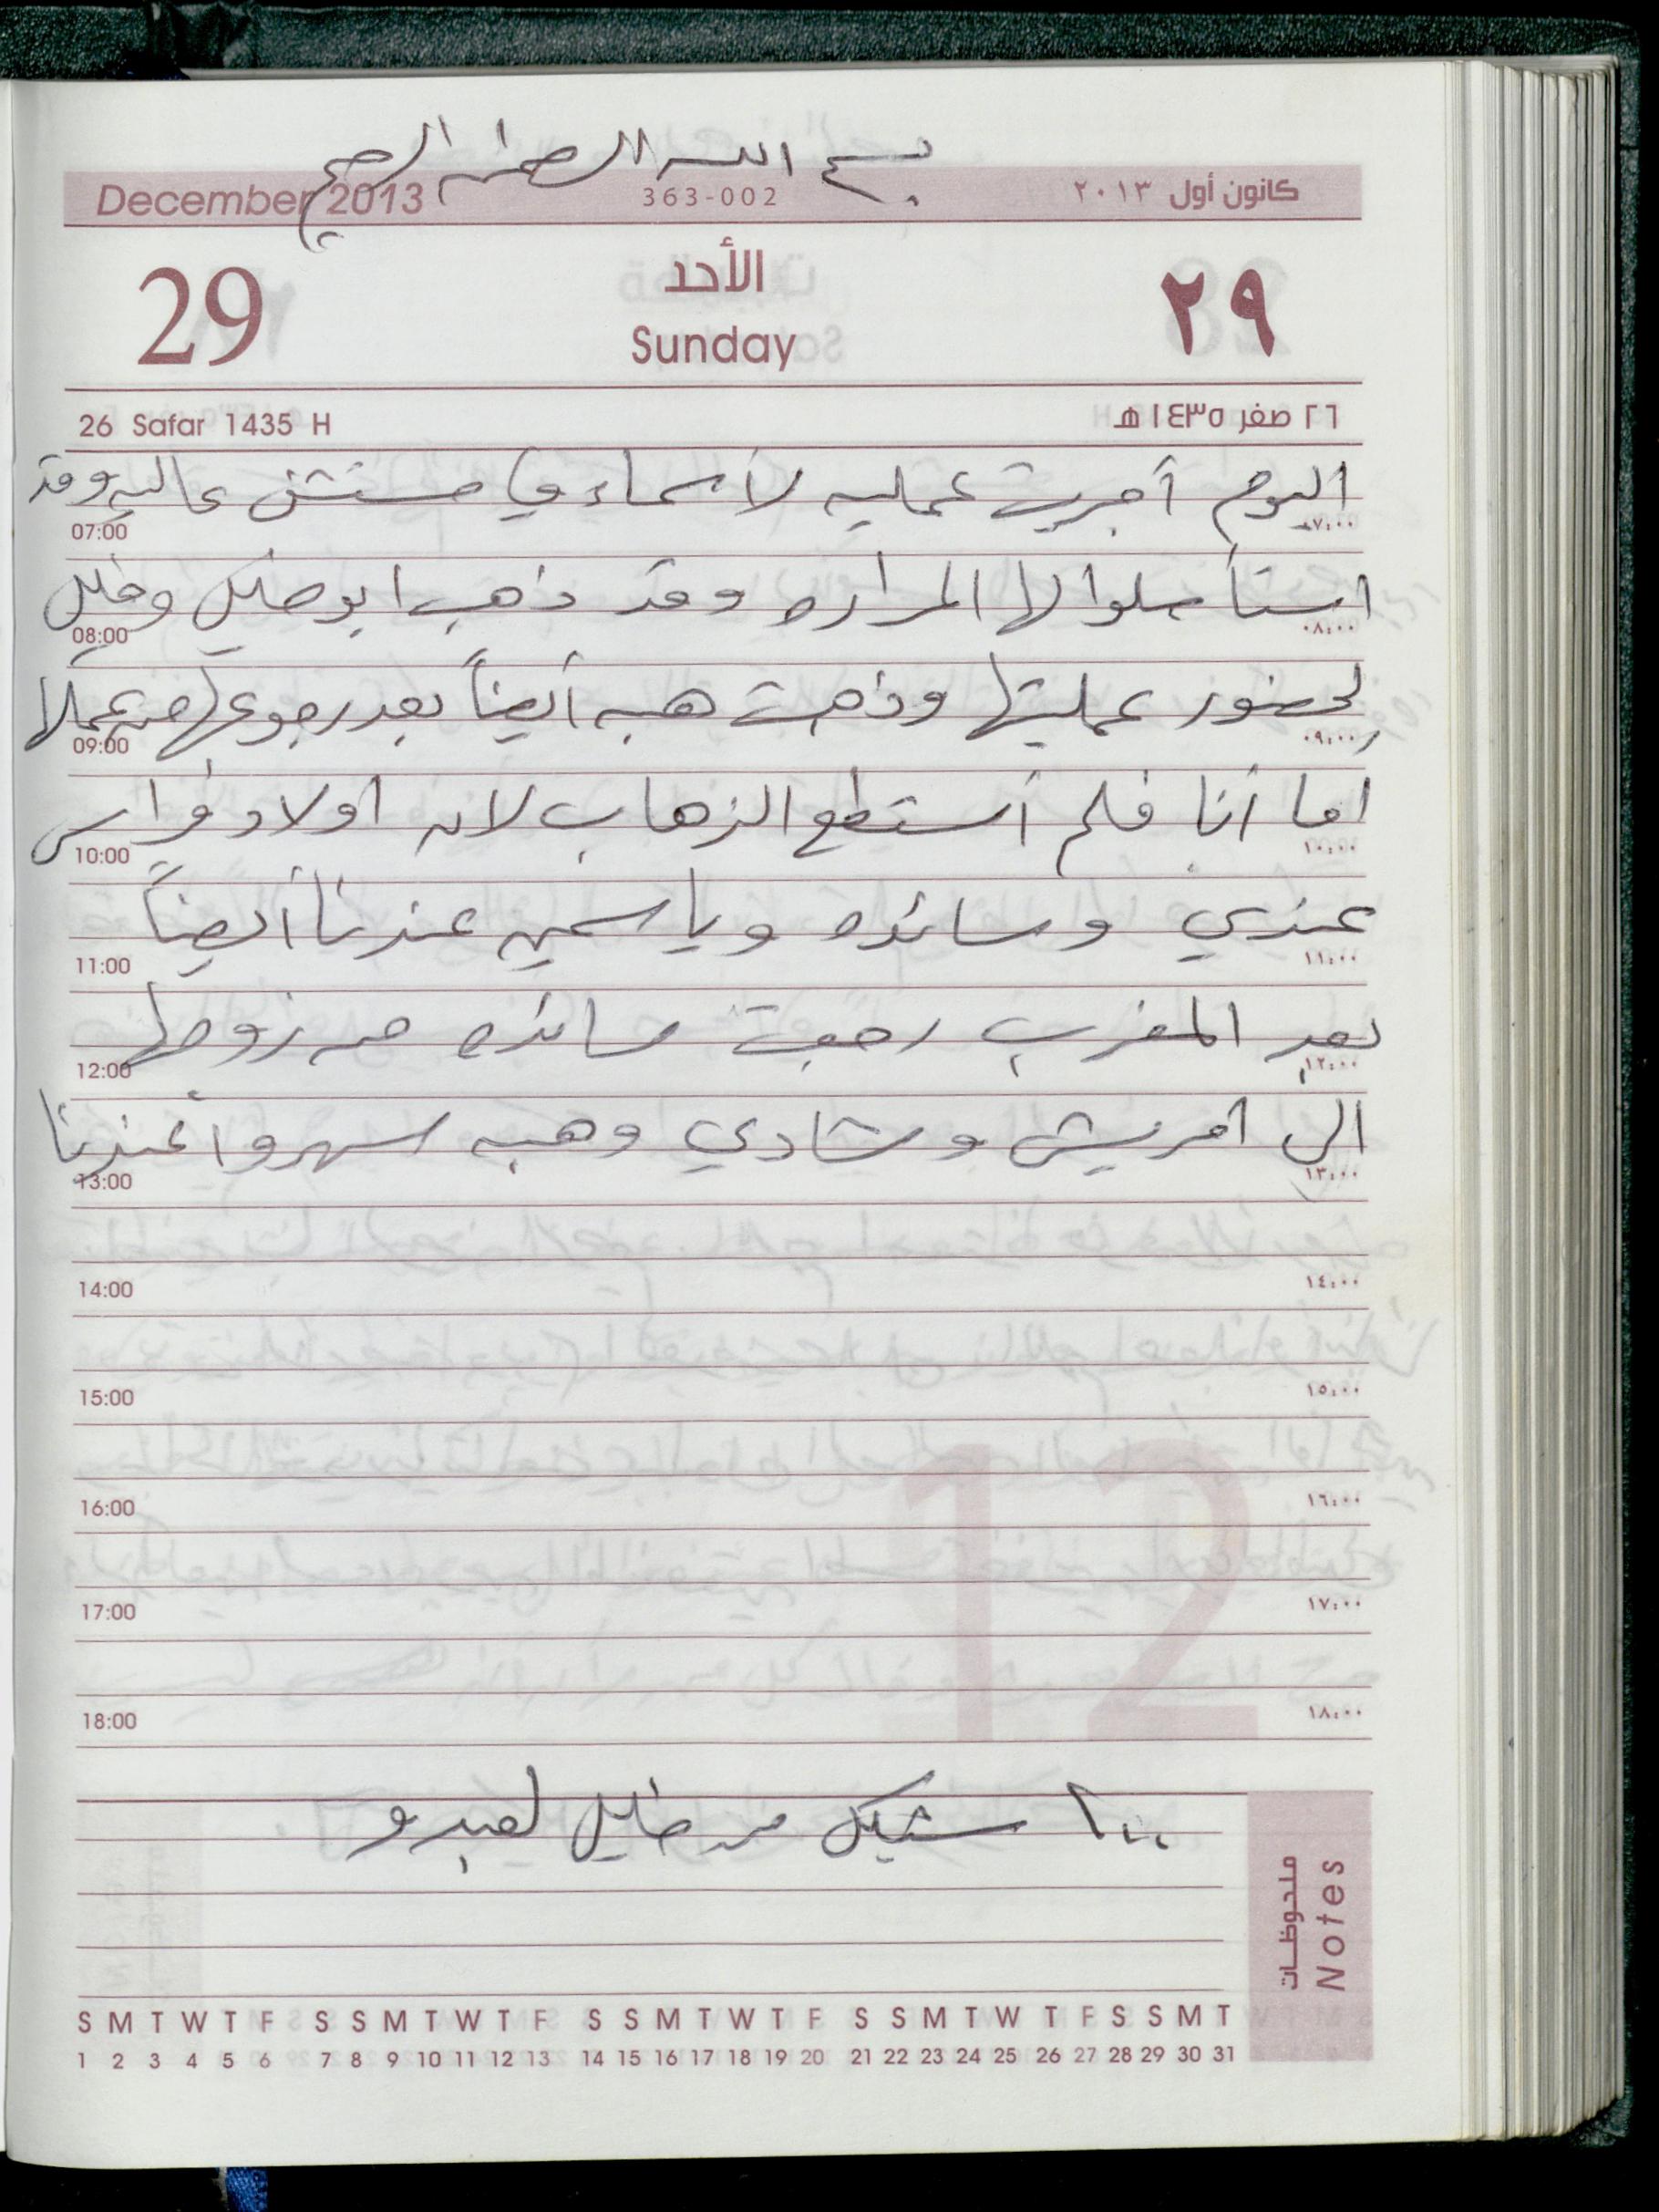 بسم الله الرحمن الرحيم
December 2013 363-002 كانون أول ٢٠١٣
29 الأحد ٢٩
Sunday
26 Safar 1435 H ٢٦ صفر ١٤٣٥ هـ
اليوم أجريت عمليه لأسماء في مستشفى عاليه وقد
07:00 ٠٧:٠٠
استأصلوا لها المراره وقد ذهب ابو خليل وخليل
08:00 ٠٨:٠٠
لحضور عمليتها وذهبت هبه أيضاً بعد رجوعها من عملها
09:00 ٠٩:٠٠
أما أنا فلم أستطع الذهاب لان اولاد فراس
10:00 ١٠:٠٠
عندي وسائده وياسمين عندنا أيضاً
11:00 ١١:٠٠
بعد المغرب رجعت سائده من زوجها
12:00 ١٢:٠٠
الى وشادي وهبه اسهروا عندنا
13:00 ١٣:٠٠
14:00 ١٤:٠٠
15:00 ١٥:٠٠
16:00 ١٦:٠٠
17:00 ١٧:٠٠
18:00 ١٨:٠٠
12
٢٠٠ شيكل من خليل لعبدو
ملحوظات
Notes
S M T W T F S S M T W T F S S M T W T F S S M T W T F S S M T
1 2 3 4 5 6 7 8 9 10 11 12 13 14 15 16 17 18 19 20 21 22 23 24 25 26 27 28 29 30 31